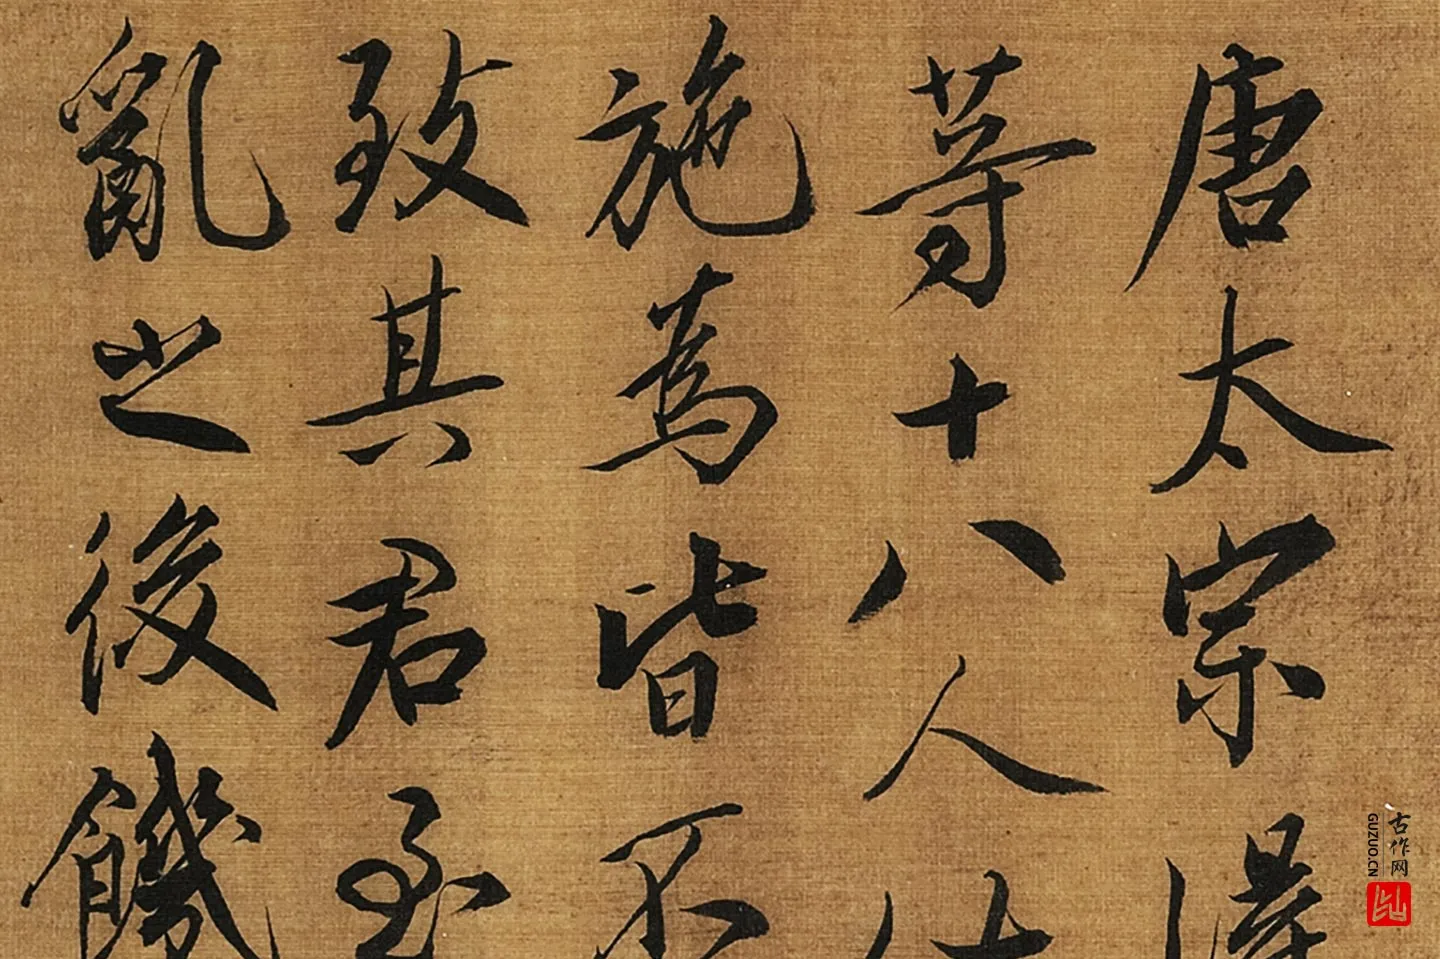 唐太宗得
等十八人
施为皆不
致其君至
亂之後饑
古作网
GUZUO.CN